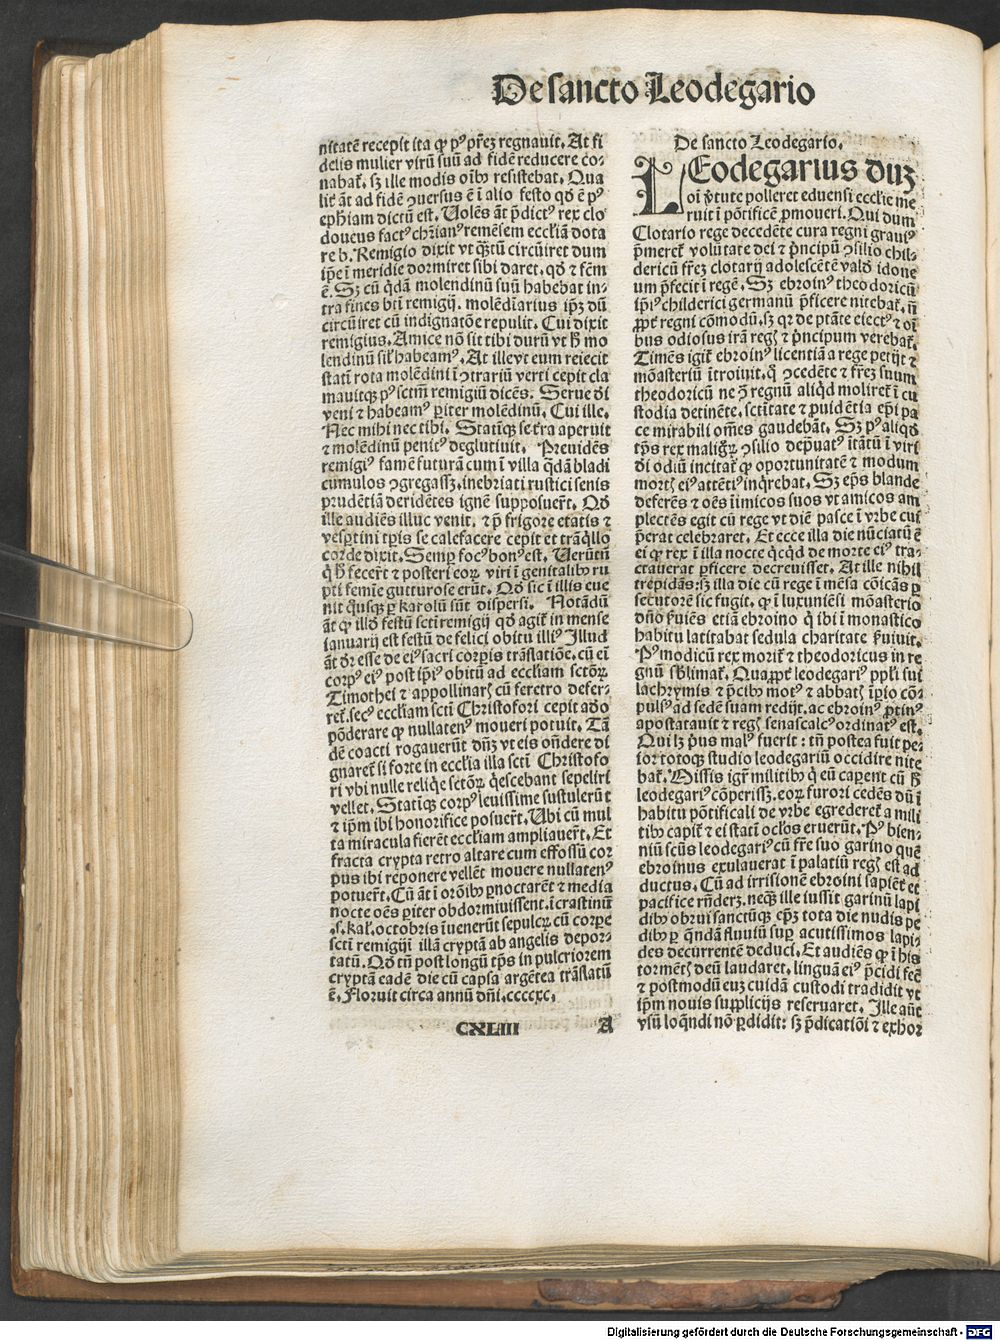 De sancto Leodegario
nitatē recepit ita ꝙ pꝰ pr̄eꝫ regnauit. At fi
delis mulier virū suū ad fidē reducere co-
nabat̄. sꝫ ille modis oībꝰ resistebat. Qua
lit̄ āt ad fidē ꝯuersus ē ī alio festo qd̄ ē pꝰ
ephīam dictū est. Volēs āt p̄dictꝰ rex clo
doueus factꝰ chr̄ianꝰ remēsem eccl̄iam dota
re b. Remigio dixit vt q̄ntū circūiret dum
ip̄e ī meridie dormiret sibi daret. qd̄ ⁊ fc̄m
ē. Sꝫ cū q̄dā molendinū suū habebat in-
tra fines bt̄i remigij. molēdīarius ip̄ꝫ dū
circūiret cū indignatōe repulit. Cui dixit
remigius. Amice nō sit tibi durū vt h̄ mo
lendinū sil̄ habeamꝰ. At ille vt eum reiecit
statī rota molēdini ī ꝯtrariū verti cepit cla
mauitqꝫ pꝰ sctm̄ remigiū dicēs. Serue dī
veni ⁊ habeamꝰ ꝑiter molēdinū. Cui ille.
Nec mihi nec tibi. Statīqꝫ se t̄ra aperuit
⁊ molēdinū penitꝰ deglutiuit. Preuidēs
remigiꝰ famē futurā cum ī villa q̄dā bladi
cumulos ꝯgregassꝫ. inebriati rustici senis
prudētiā deridētes ignē supposuer̄t. Qd̄
ille audiēs illuc venit. ⁊ p̄ frigore etatis ⁊
vesꝑtini tp̄is se calefacere cepit et trāq̄llo
corde dixit. Semꝑ focꝰ bonꝰ est. Uerūtn̄
q̄ h̄ fecer̄t ⁊ posteri eoꝝ viri ī genitalibꝰ ru
pti femīe gutturose erūt. Qd̄ sic ī illis eue
nit q̄usqꝫ ꝑ karolū sūt dispersi. Notādū
āt ꝙ illd̄ festū scti remigij qd̄ agit̄ in mense
ianuarij est festū de felici obitu illiꝰ Illud
āt dr̄ esse de eiꝰ sacri corꝑis trāslatiōe. cū em̄
corpꝰ eiꝰ post ip̄iꝰ obitū ad eccl̄iam sctōꝝ
Timothei ⁊ appollinarꝭ cū feretro defer-
ret̄. secꝰ eccl̄iam scti Christofori cepit adeo
pōderare ꝙ nullatenꝰ moueri potuit. Tā
dē coacti rogauerūt dn̄ꝫ vt eis on̄dere di
gnaret̄ si forte in eccl̄ia illa scti Christofo
ri vbi nulle reliq̄e sctōꝝ q̄escebant sepeliri
vellet. Statīqꝫ corpꝰ leuissime sustulerūt
⁊ ip̄m ibi honorifice posuer̄t. Ubi cū mul
ta miracula fierēt eccl̄iam ampliauer̄t. Et
fracta crypta retro altare cum effossū cor
pus ibi reponere vellēt mouere nullatenꝰ
potuer̄t. Cū āt ī orōibꝰ ꝑnoctarēt ⁊ media
nocte oēs ꝑiter obdormiuissent. ī crastinū
.s. kal̄. octobris īuenerūt sepulcꝝ cū corꝑe
scti remigij ī illā cryptā ab angelis depor-
tatū. Qd̄ tn̄ post longū tp̄s in pulcriorem
cryptā eadē die cū capsa argētea trāslatū
ē. Floruit circa annū dn̄i. ccccxc.
CXLIII A
De sancto Leodegario.
LEodegarius cuꝫ
oī v̄tute polleret eduensi eccl̄ie me
ruit ī pōtificē ꝓmoueri. Qui dum
Clotario rege decedēte cura regni grauiꝰ
p̄meret̄ volūtate dei ⁊ p̄ncipū ꝯsilio chil-
dericū fr̄eꝫ clotarij adolescētē vald̄ idone
um p̄fecit ī regē. Sꝫ ebroinꝰ theodoricū
ip̄iꝰ childerici germanū p̄ficere nitebat̄. n̄
ꝓpt̄ regni cōmodū. sꝫ qꝛ de ptāte eiectꝰ ⁊ oī
bus odiosus irā regꝭ ⁊ p̄ncipum verebat̄.
Timēs igit̄ ebroinꝰ licentiā a rege petijt ⁊
mōasteriū ītroiuit. q̄ ꝯcedēte ⁊ fr̄eꝫ suum
theodoricū ne ꝯ regnū aliqd̄ moliret̄ ī cu
stodia detinēte. sctitate ⁊ ꝓuidētia ep̄i pa
ce mirabili om̄es gaudebāt. Sꝫ pꝰ aliqd̄
tp̄s rex malignꝝ ꝯsilio deprauatꝰ ītātū ī virū
dī odiū incitat̄ ꝙ oportunitatē ⁊ modum
mortꝭ eiꝰ attētiꝰ inq̄rebat. Sꝫ ep̄s blande
deferēs ⁊ oēs īimicos suos vt amicos am
plectēs egit cū rege vt diē pasce ī vrbe cui
p̄erat celebraret. Et ecce illa die nūciatū ē
ei ꝙ rex ī illa nocte q̄cqd̄ de morte eiꝰ tra-
ctauerat ꝑficere decreuisset. At ille nihil
trepidās: sꝫ illa die cū rege ī mēsa cōicās ꝑ
secutorē sic fugit. ꝙ ī luxuuiēsi mōasterio
dn̄o ẜuiēs etiā ebroino q̄ ibi ī monastico
habitu latitabat sedula charitate ẜuiuit.
Pꝰ modicū rex morit̄ ⁊ theodoricus in re
gnū sb̄limat̄. Quaꝓpt̄ leodegariꝰ pp̄li sui
lachrymis ⁊ p̄cibꝰ motꝰ ⁊ abbatꝭ īpio cō-
pulsꝰ ad sedē suam redijt. ac ebroinꝰ ꝓtinꝰ
apostatauit ⁊ regꝭ senascalcꝰ ordinatꝰ est.
Qui lꝫ p̄us malꝰ fuerit: tn̄ postea fuit pe-
ior totoqꝫ studio leodegariū occidere nite
bat̄. Missis igr̄ militibꝰ q̄ eū caꝑent cū h̄
leodegariꝰ cōperissꝫ. eoꝝ furori cedēs dū ī
habitu pōtificali de vrbe egrederet̄ a mili
tibꝰ capit̄ ⁊ ei statī oc̄los eruerūt. Pꝰ bien-
niū scūs leodegariꝰ cū fr̄e suo garino quē
ebroinus exulauerat ī palatiū regꝭ est ad
ductus. Cū ad irrisionē ebroini sapiēt̄ et
pacifice rn̄derꝫ. neqꝫ ille iussit garinū lapi
dibꝰ obrui sanctūqꝫ ep̄ꝫ tota die nudis pe
dibꝰ ꝑ q̄ndā fluuiū suꝑ acutissimos lapi-
des decurrentē deduci. Et audiēs ꝙ ī his
tormētꝭ deū laudaret. linguā eiꝰ p̄cidi fec̄
⁊ postmodū euꝫ cuidā custodi tradidit vt
ip̄m nouis supplicijs reseruaret. Ille aūt
vsū loq̄ndi nō ꝑdidit: sꝫ p̄dicatiōi ⁊ exhor
Digitalisierung gefördert durch die Deutsche Forschungsgemeinschaft - DFG